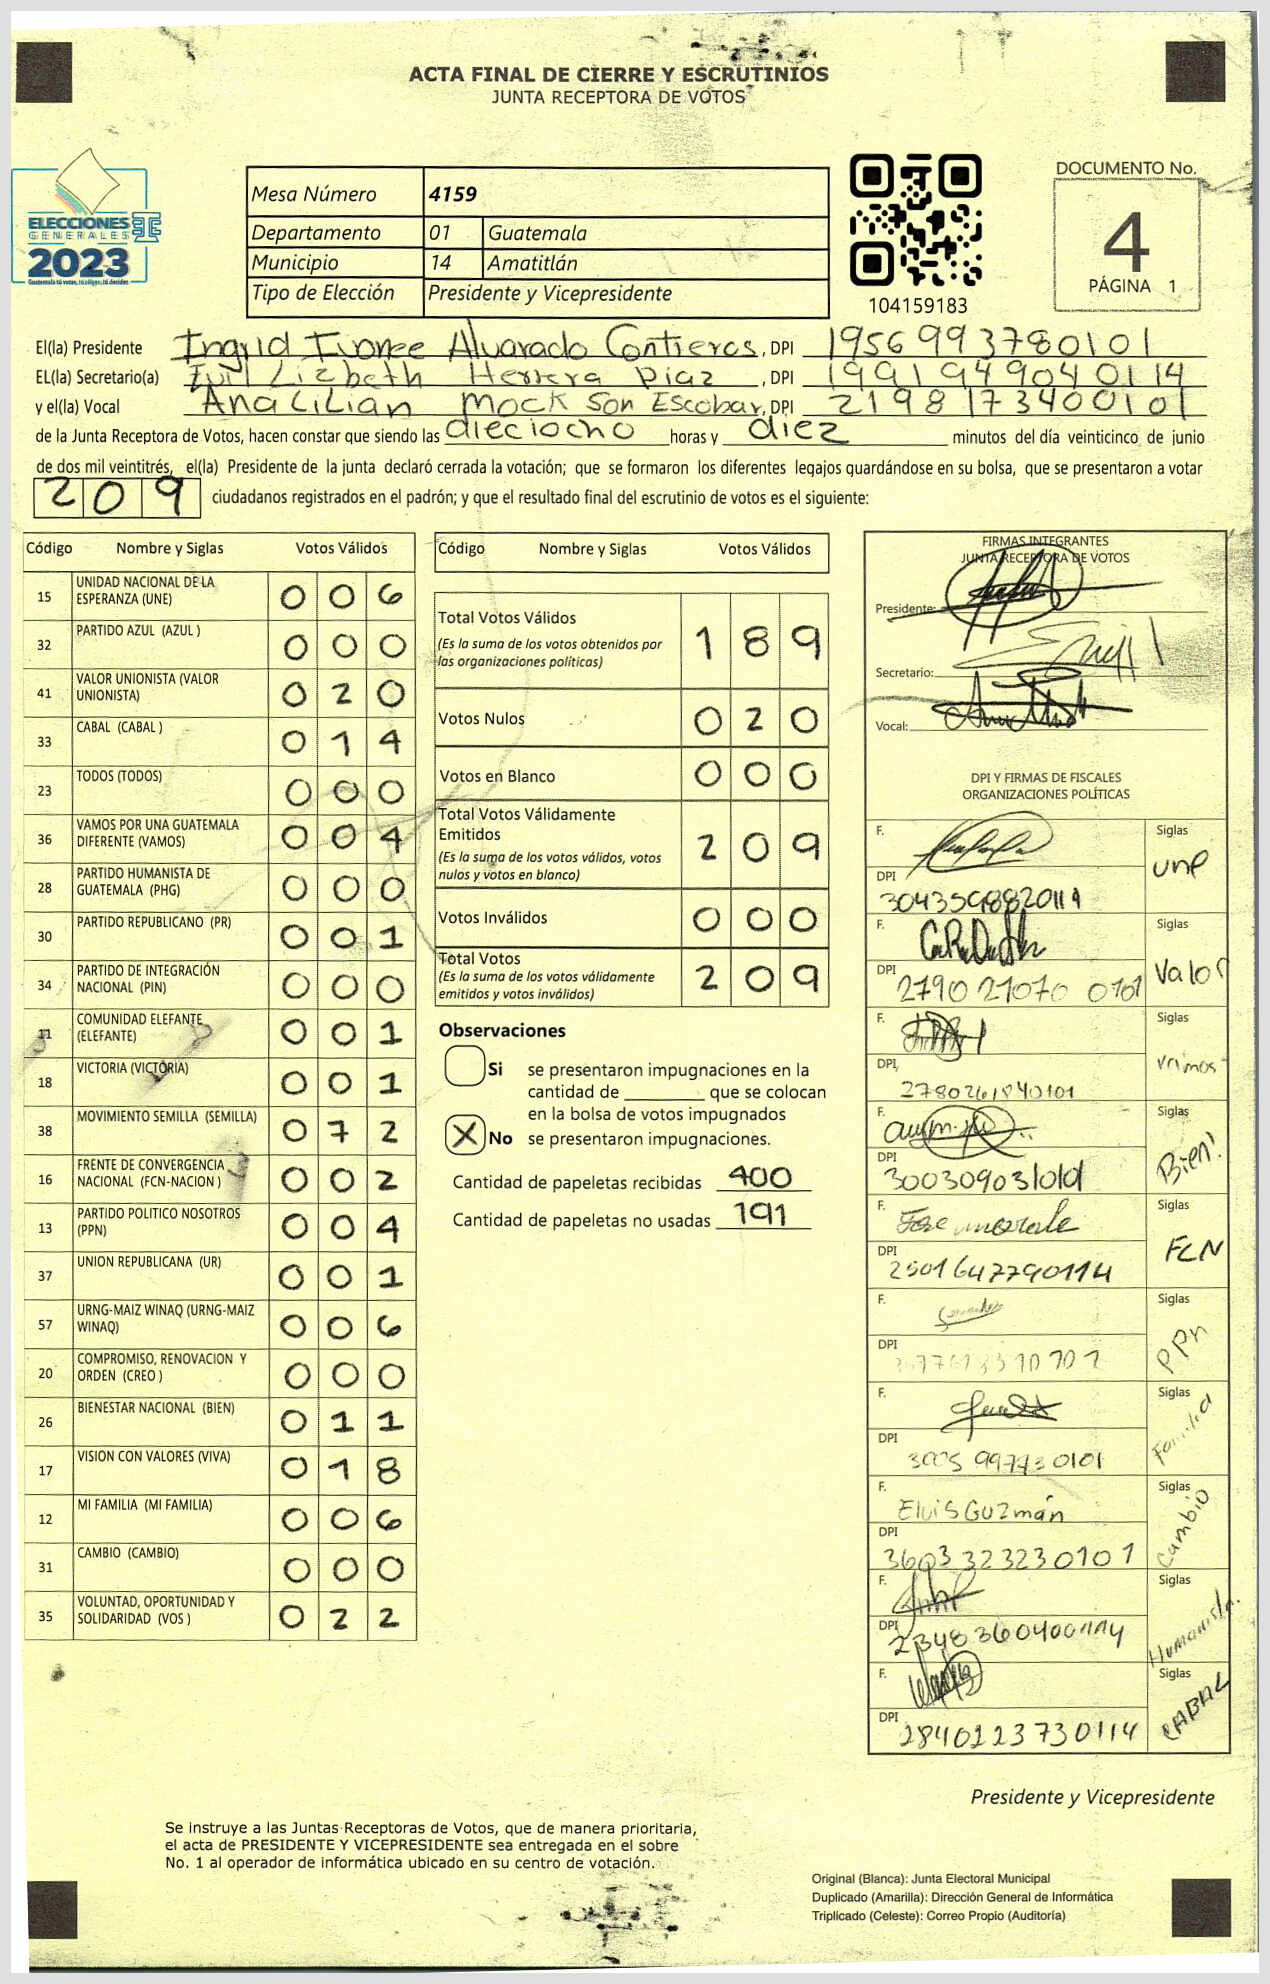 ACTA FINAL DE CIERRE Y ESCRUTINIOS
JUNTA RECEPTORA DE VOTOS
ELECCIONES
GENERALES
2023
Guatemala tú votas, tú eliges, tú decides
Mesa Número 4159
Departamento 01 Guatemala
Municipio 14 Amatitlán
Tipo de Elección Presidente y Vicepresidente
104159183
DOCUMENTO No.
4
PÁGINA 1
El(la) Presidente Ingrid Ivonee Alvarado Contreros, DPI 1956993780101
EL(la) Secretario(a) Lizbeth Herrera Diaz, DPI 1991949040114
y el(la) Vocal Ana Lilian Mock Son Escobar, DPI 2198173400101
de la Junta Receptora de Votos, hacen constar que siendo las dieciocho horas y diez minutos del día veinticinco de junio
de dos mil veintitrés, el(la) Presidente de la junta declaró cerrada la votación; que se formaron los diferentes legajos guardándose en su bolsa, que se presentaron a votar
209 ciudadanos registrados en el padrón; y que el resultado final del escrutinio de votos es el siguiente:
Código Nombre y Siglas Votos Válidos
15 UNIDAD NACIONAL DE LA ESPERANZA (UNE) 006
32 PARTIDO AZUL (AZUL ) 000
41 VALOR UNIONISTA (VALOR UNIONISTA) 020
33 CABAL (CABAL ) 014
23 TODOS (TODOS) 000
36 VAMOS POR UNA GUATEMALA DIFERENTE (VAMOS) 004
28 PARTIDO HUMANISTA DE GUATEMALA (PHG) 000
30 PARTIDO REPUBLICANO (PR) 001
34 PARTIDO DE INTEGRACIÓN NACIONAL (PIN) 000
11 COMUNIDAD ELEFANTE (ELEFANTE) 001
18 VICTORIA (VICTORIA) 001
38 MOVIMIENTO SEMILLA (SEMILLA) 072
16 FRENTE DE CONVERGENCIA NACIONAL (FCN-NACION ) 002
13 PARTIDO POLITICO NOSOTROS (PPN) 004
37 UNION REPUBLICANA (UR) 001
57 URNG-MAIZ WINAQ (URNG-MAIZ WINAQ) 006
20 COMPROMISO, RENOVACION Y ORDEN (CREO ) 000
26 BIENESTAR NACIONAL (BIEN) 011
17 VISION CON VALORES (VIVA) 018
12 MI FAMILIA (MI FAMILIA) 006
31 CAMBIO (CAMBIO) 000
35 VOLUNTAD, OPORTUNIDAD Y SOLIDARIDAD (VOS ) 022
Código Nombre y Siglas Votos Válidos
Total Votos Válidos 189
(Es la suma de los votos obtenidos por
las organizaciones políticas)
Votos Nulos 020
Votos en Blanco 000
Total Votos Válidamente
Emitidos 209
(Es la suma de los votos válidos, votos
nulos y votos en blanco)
Votos Inválidos 000
Total Votos 209
(Es la suma de los votos válidamente
emitidos y votos inválidos)
Observaciones
Si se presentaron impugnaciones en la
cantidad de ________ que se colocan
en la bolsa de votos impugnados
X No se presentaron impugnaciones.
Cantidad de papeletas recibidas 400
Cantidad de papeletas no usadas 191
FIRMAS INTEGRANTES
JUNTA RECEPTORA DE VOTOS
Presidente:
Secretario:
Vocal:
DPI Y FIRMAS DE FISCALES
ORGANIZACIONES POLÍTICAS
F. Siglas une
DPI
F. Siglas Valor
DPI 2790 21070 0101
F. Siglas
DPI 2780261840101
F. Siglas Bien!
DPI 3003090310101
F. Siglas FCN
DPI 2501647790114
F. Siglas PPn
DPI
F. Siglas Familia
DPI 3005 997430101
F. Elvis Guzmán Siglas Cambio
DPI 3603323230101
F. Siglas Humanista
DPI 2348360400114
F. Siglas CABAL
DPI 2840123730114
Presidente y Vicepresidente
Se instruye a las Juntas Receptoras de Votos, que de manera prioritaria,
el acta de PRESIDENTE Y VICEPRESIDENTE sea entregada en el sobre
No. 1 al operador de informática ubicado en su centro de votación.
Original (Blanca): Junta Electoral Municipal
Duplicado (Amarilla): Dirección General de Informática
Triplicado (Celeste): Correo Propio (Auditoría)